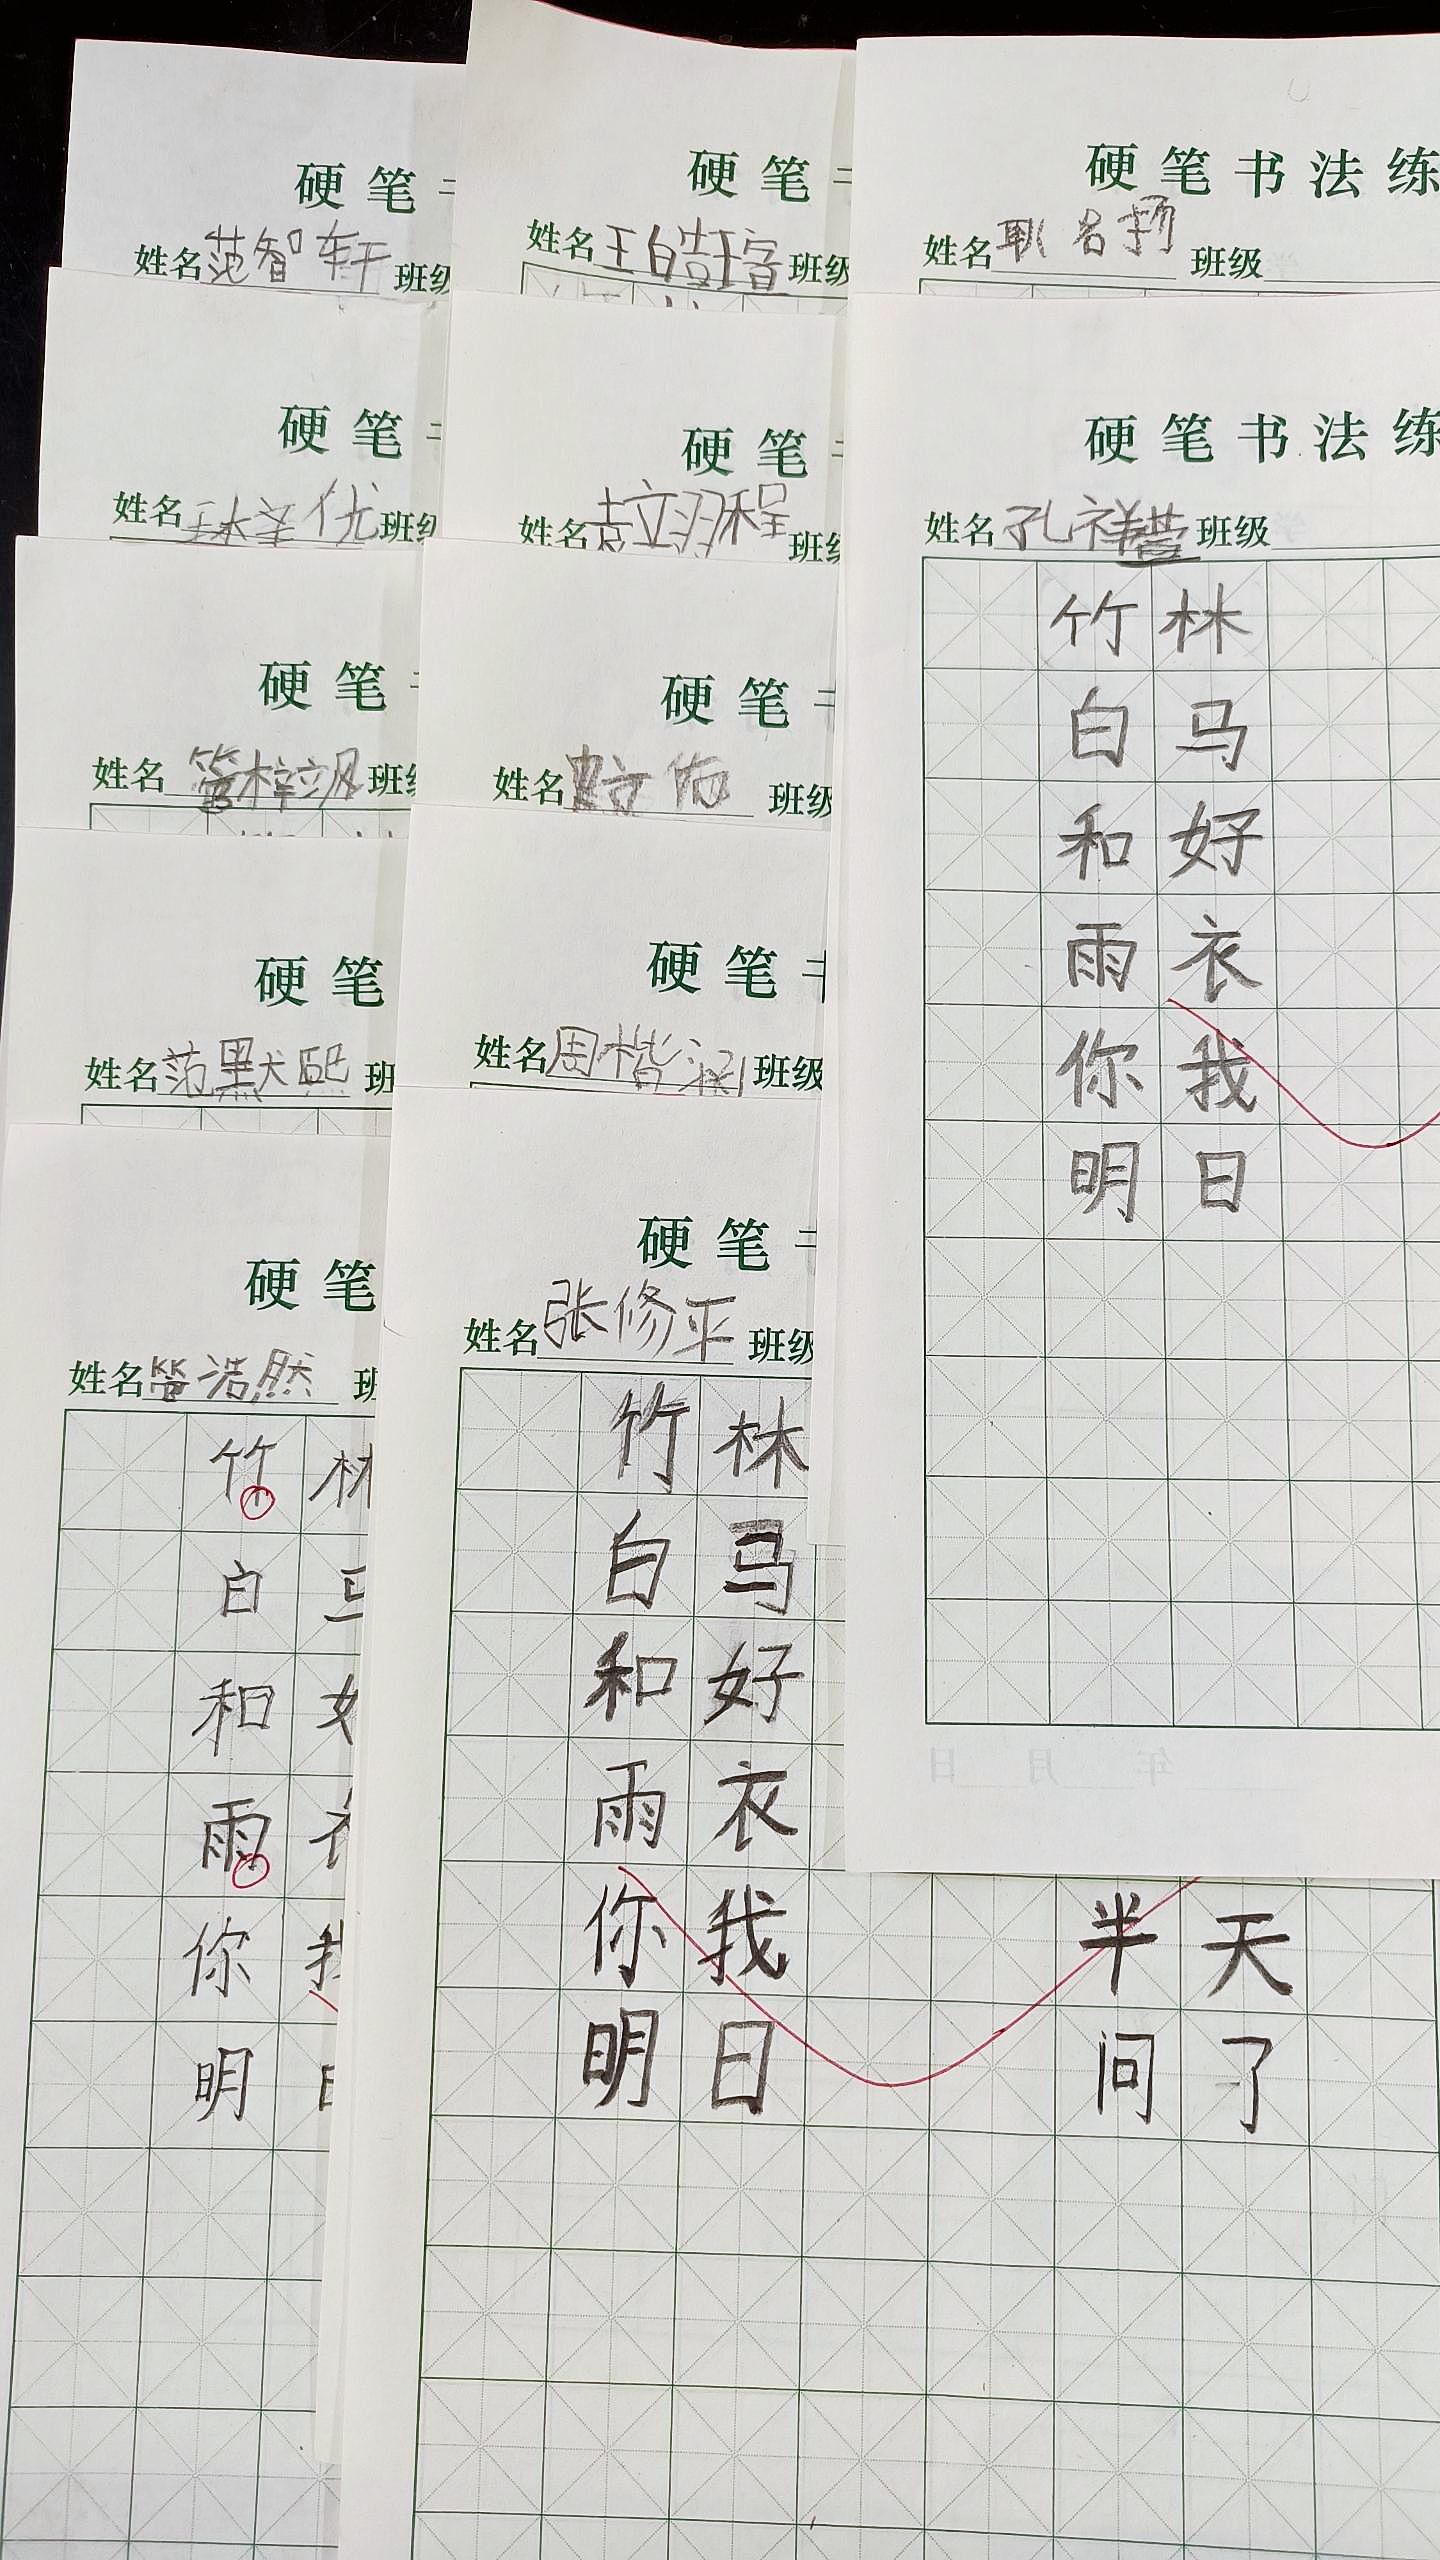 硬笔
姓名范智轩班级
硬笔
姓名 班级
硬笔
姓名管梓飒班级
硬笔
姓名范默熙班
硬笔
姓名管浩然班
竹林
白马
和
雨衣
你我
明日
硬笔
姓名王皓萱班级
硬笔
姓名 程班级
硬笔
姓名 佑班级
硬笔书
姓名周楷涵班级
硬笔
姓名张修平班级
竹林
白马
和好
雨衣
你我 半天
明日 问了
硬笔书法练
姓名 班级
硬笔书法练
姓名孔祥 班级
竹林
白马
和好
雨衣
你我
明日
年 月 日